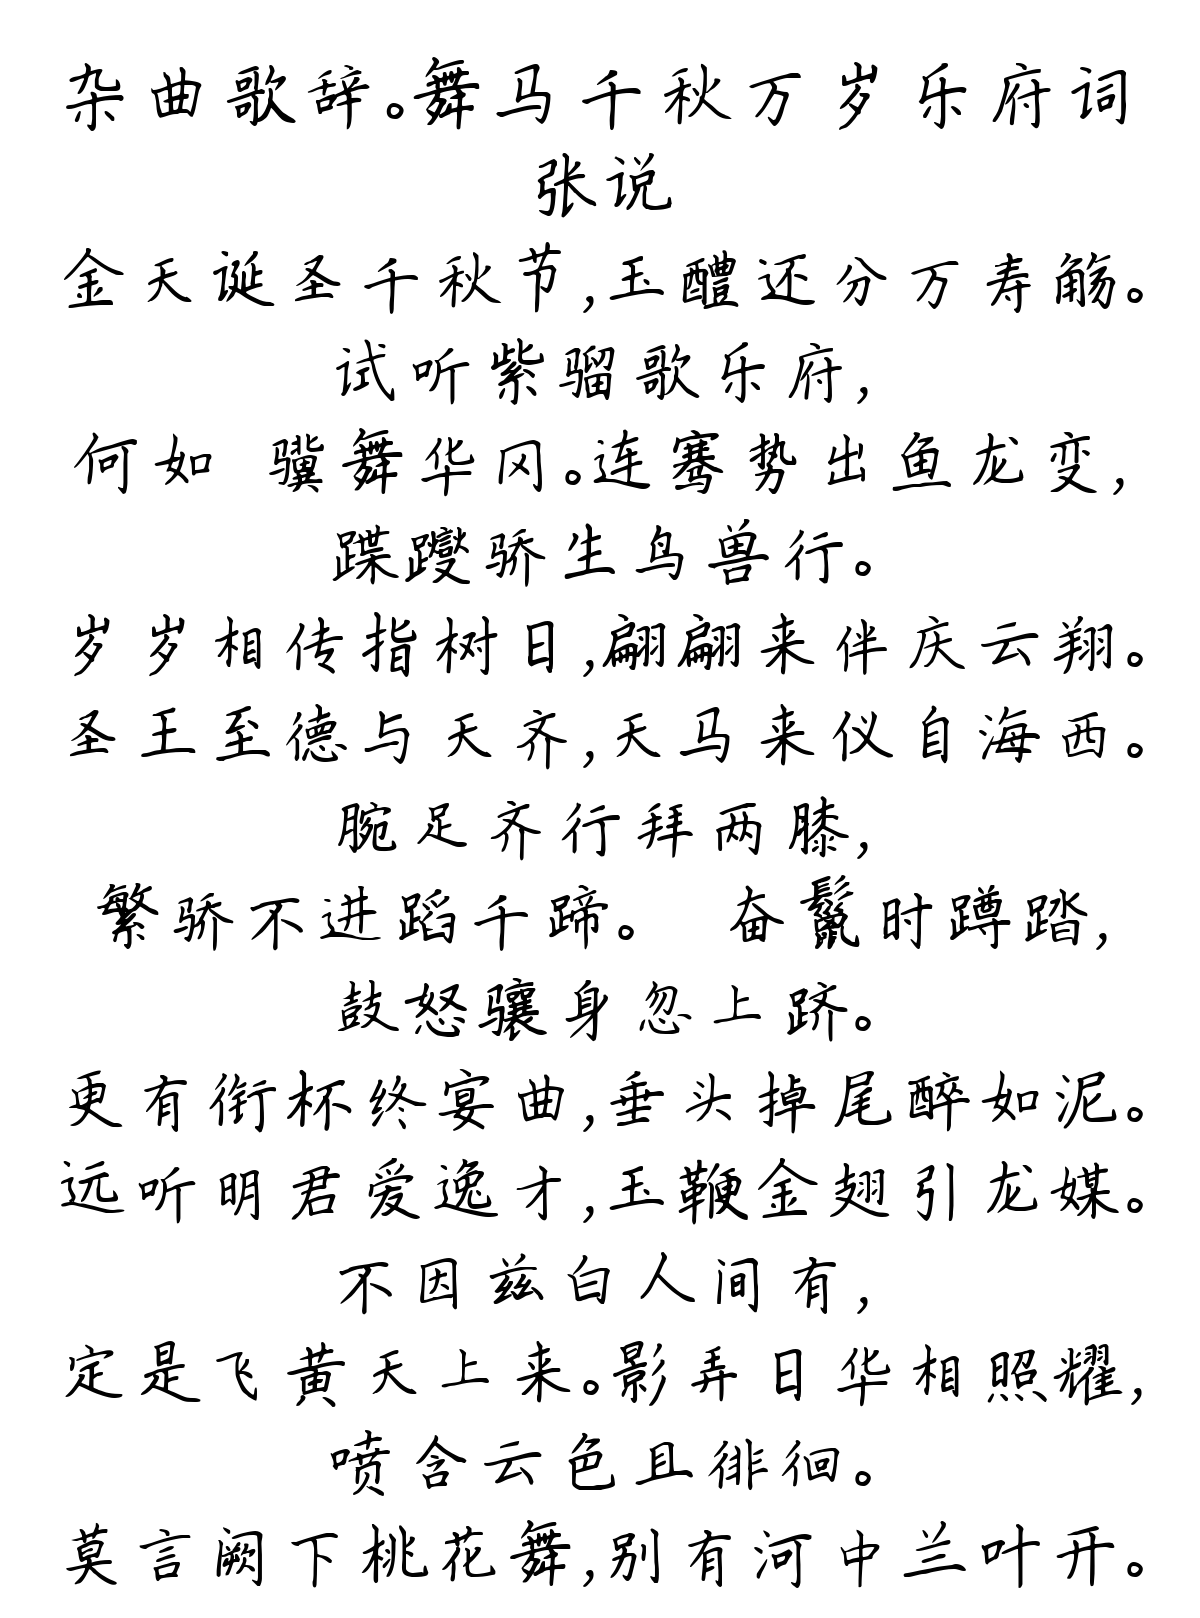 杂曲歌辞。舞马千秋万岁乐府词
张说
金天诞圣千秋节,玉醴还分万寿觞。
试听紫骝歌乐府,
何如 骥舞华冈。连骞势出鱼龙变,
蹀躞骄生鸟兽行。
岁岁相传指树日,翩翩来伴庆云翔。
圣王至德与天齐,天马来仪自海西。
腕足齐行拜两膝,
繁骄不进蹈千蹄。 奋鬣时蹲踏,
鼓怒骧身忽上跻。
更有衔杯终宴曲,垂头掉尾醉如泥。
远听明君爱逸才,玉鞭金翅引龙媒。
不因兹白人间有,
定是飞黄天上来。影弄日华相照耀,
喷含云色且徘徊。
莫言阙下桃花舞,别有河中兰叶开。